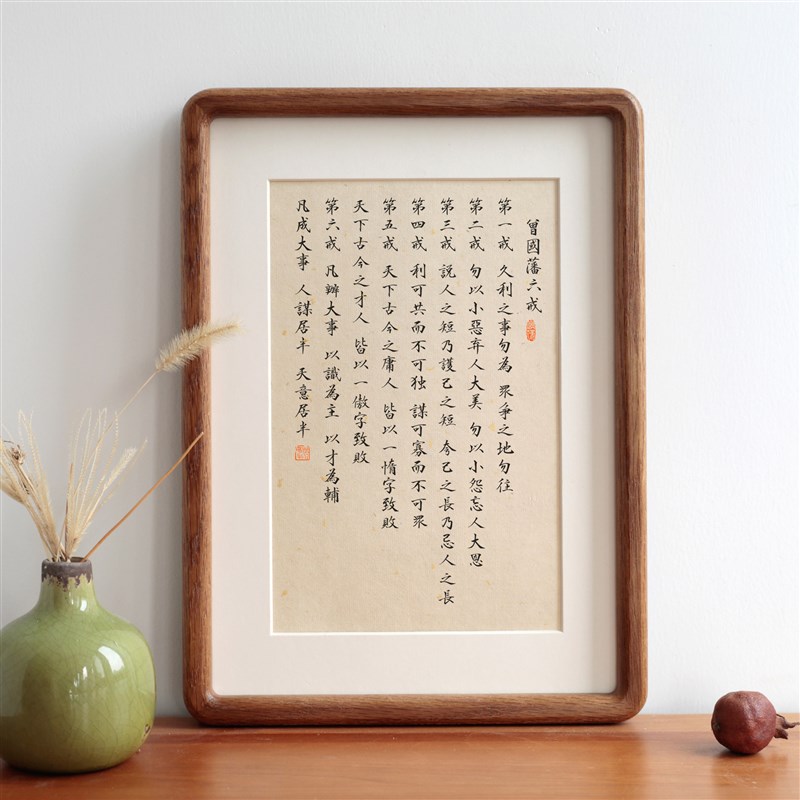 曾國藩六戒
第一戒 久利之事勿為 眾爭之地勿往
第二戒 勿以小惡弃人大美 勿以小怨忘人大恩
第三戒 説人之短乃護己之短 夸己之長乃忌人之長
第四戒 利可共而不可独 謀可寡而不可眾
第五戒 天下古今之庸人 皆以一惰字致敗
天下古今之才人 皆以一傲字致敗
第六戒 凡辦大事 以識為主 以才為輔
凡成大事 人謀居半 天意居半